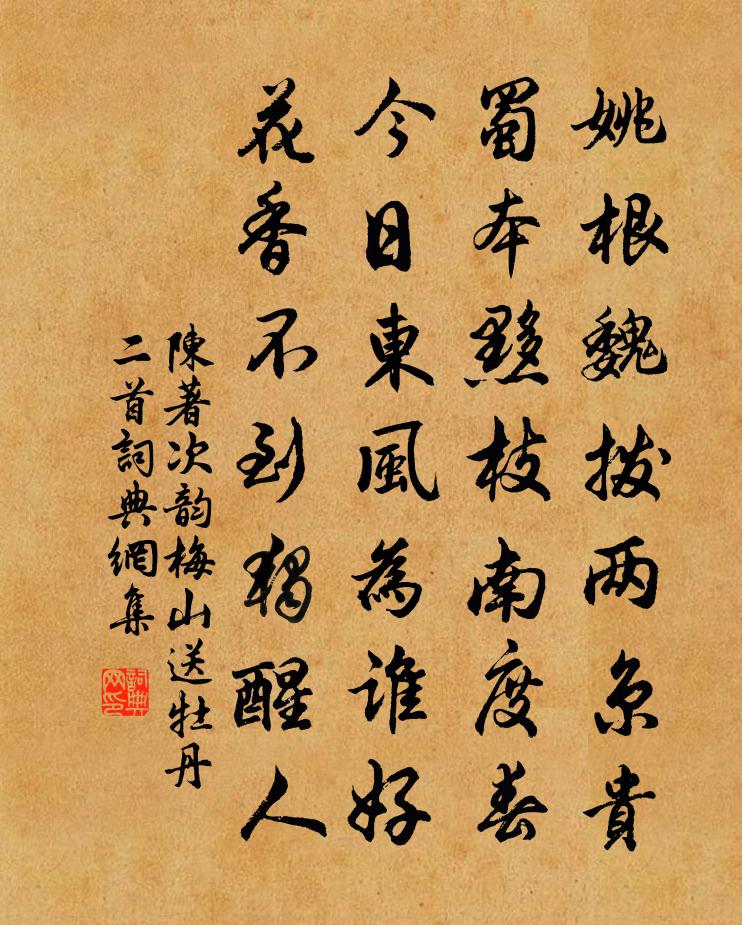 姚根魏拨两京貴
蜀本黟枝南度春
今日東風為誰好
花香不到獨醒人
陳著次韵梅山送牡丹
二首詞典網集
詞典
网印